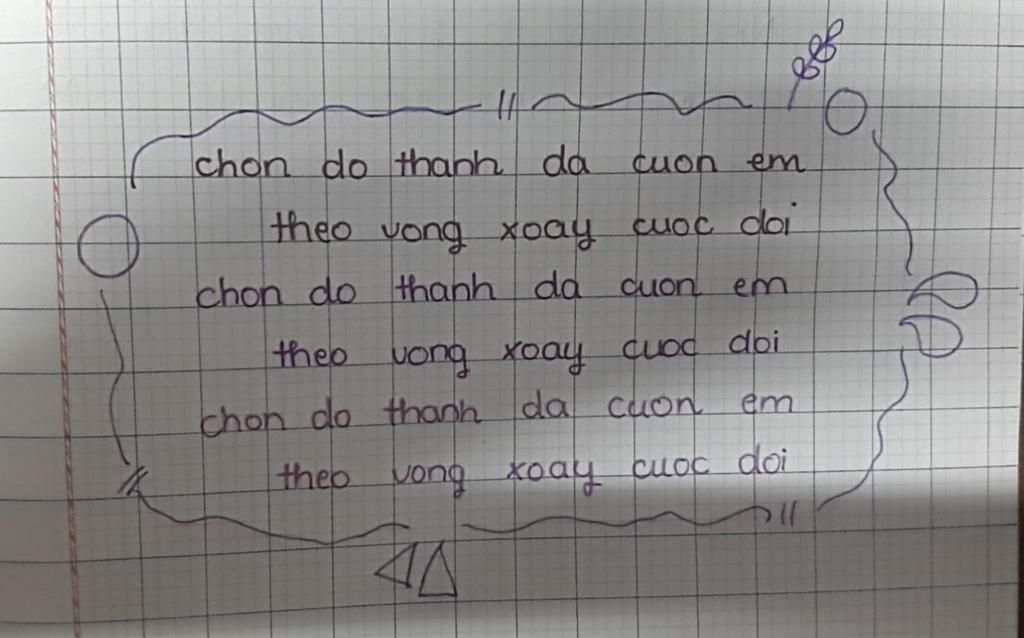 chon do thanh da cuon em
theo vong xoay cuoc doi
chon do thanh da cuon em
theo vong xoay cuoc doi
chon do thanh da cuon em
theo vong xoay cuoc doi